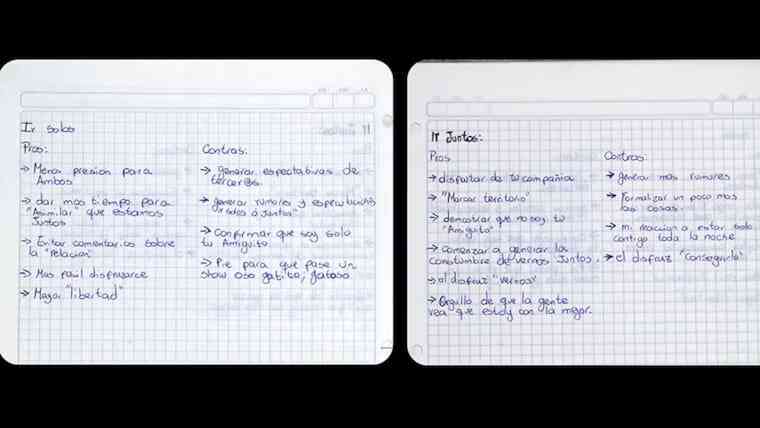 Ir solos
Pros:
→ Menor presion para
Ambos
→ dar mas tiempo para
"Asimilar" que estamos
Juntos
→ Evitar comentarios sobre
la "relacion"
→ Mas facil disfrazarce
→ Mayor "libertad"
Contras:
→ generar espectativas de
terceros.
→ generar rumores y espectativas
Juntos"
→ Confirmar que soy solo
tu Amiguito
→ Pie para que pase un
show oso gatito, gatoso
Ir Juntos:
Pros
→ disfrutar de tu compañia
→ "Marcar territorio"
→ demostrar que no soy tu
"Amiguito"
→ Comenzar a generar la
constumbre de vernos Juntos.
→ el disfraz "vernos"
→ Orgullo de que la gente
vea que estoy con la mejor.
Contras:
→ generar mas rumores
→ Formalizar un poco mas
las cosas.
→ mi reaccion a estar solo
contigo toda la noche
→ el disfraz "conseguirlo"